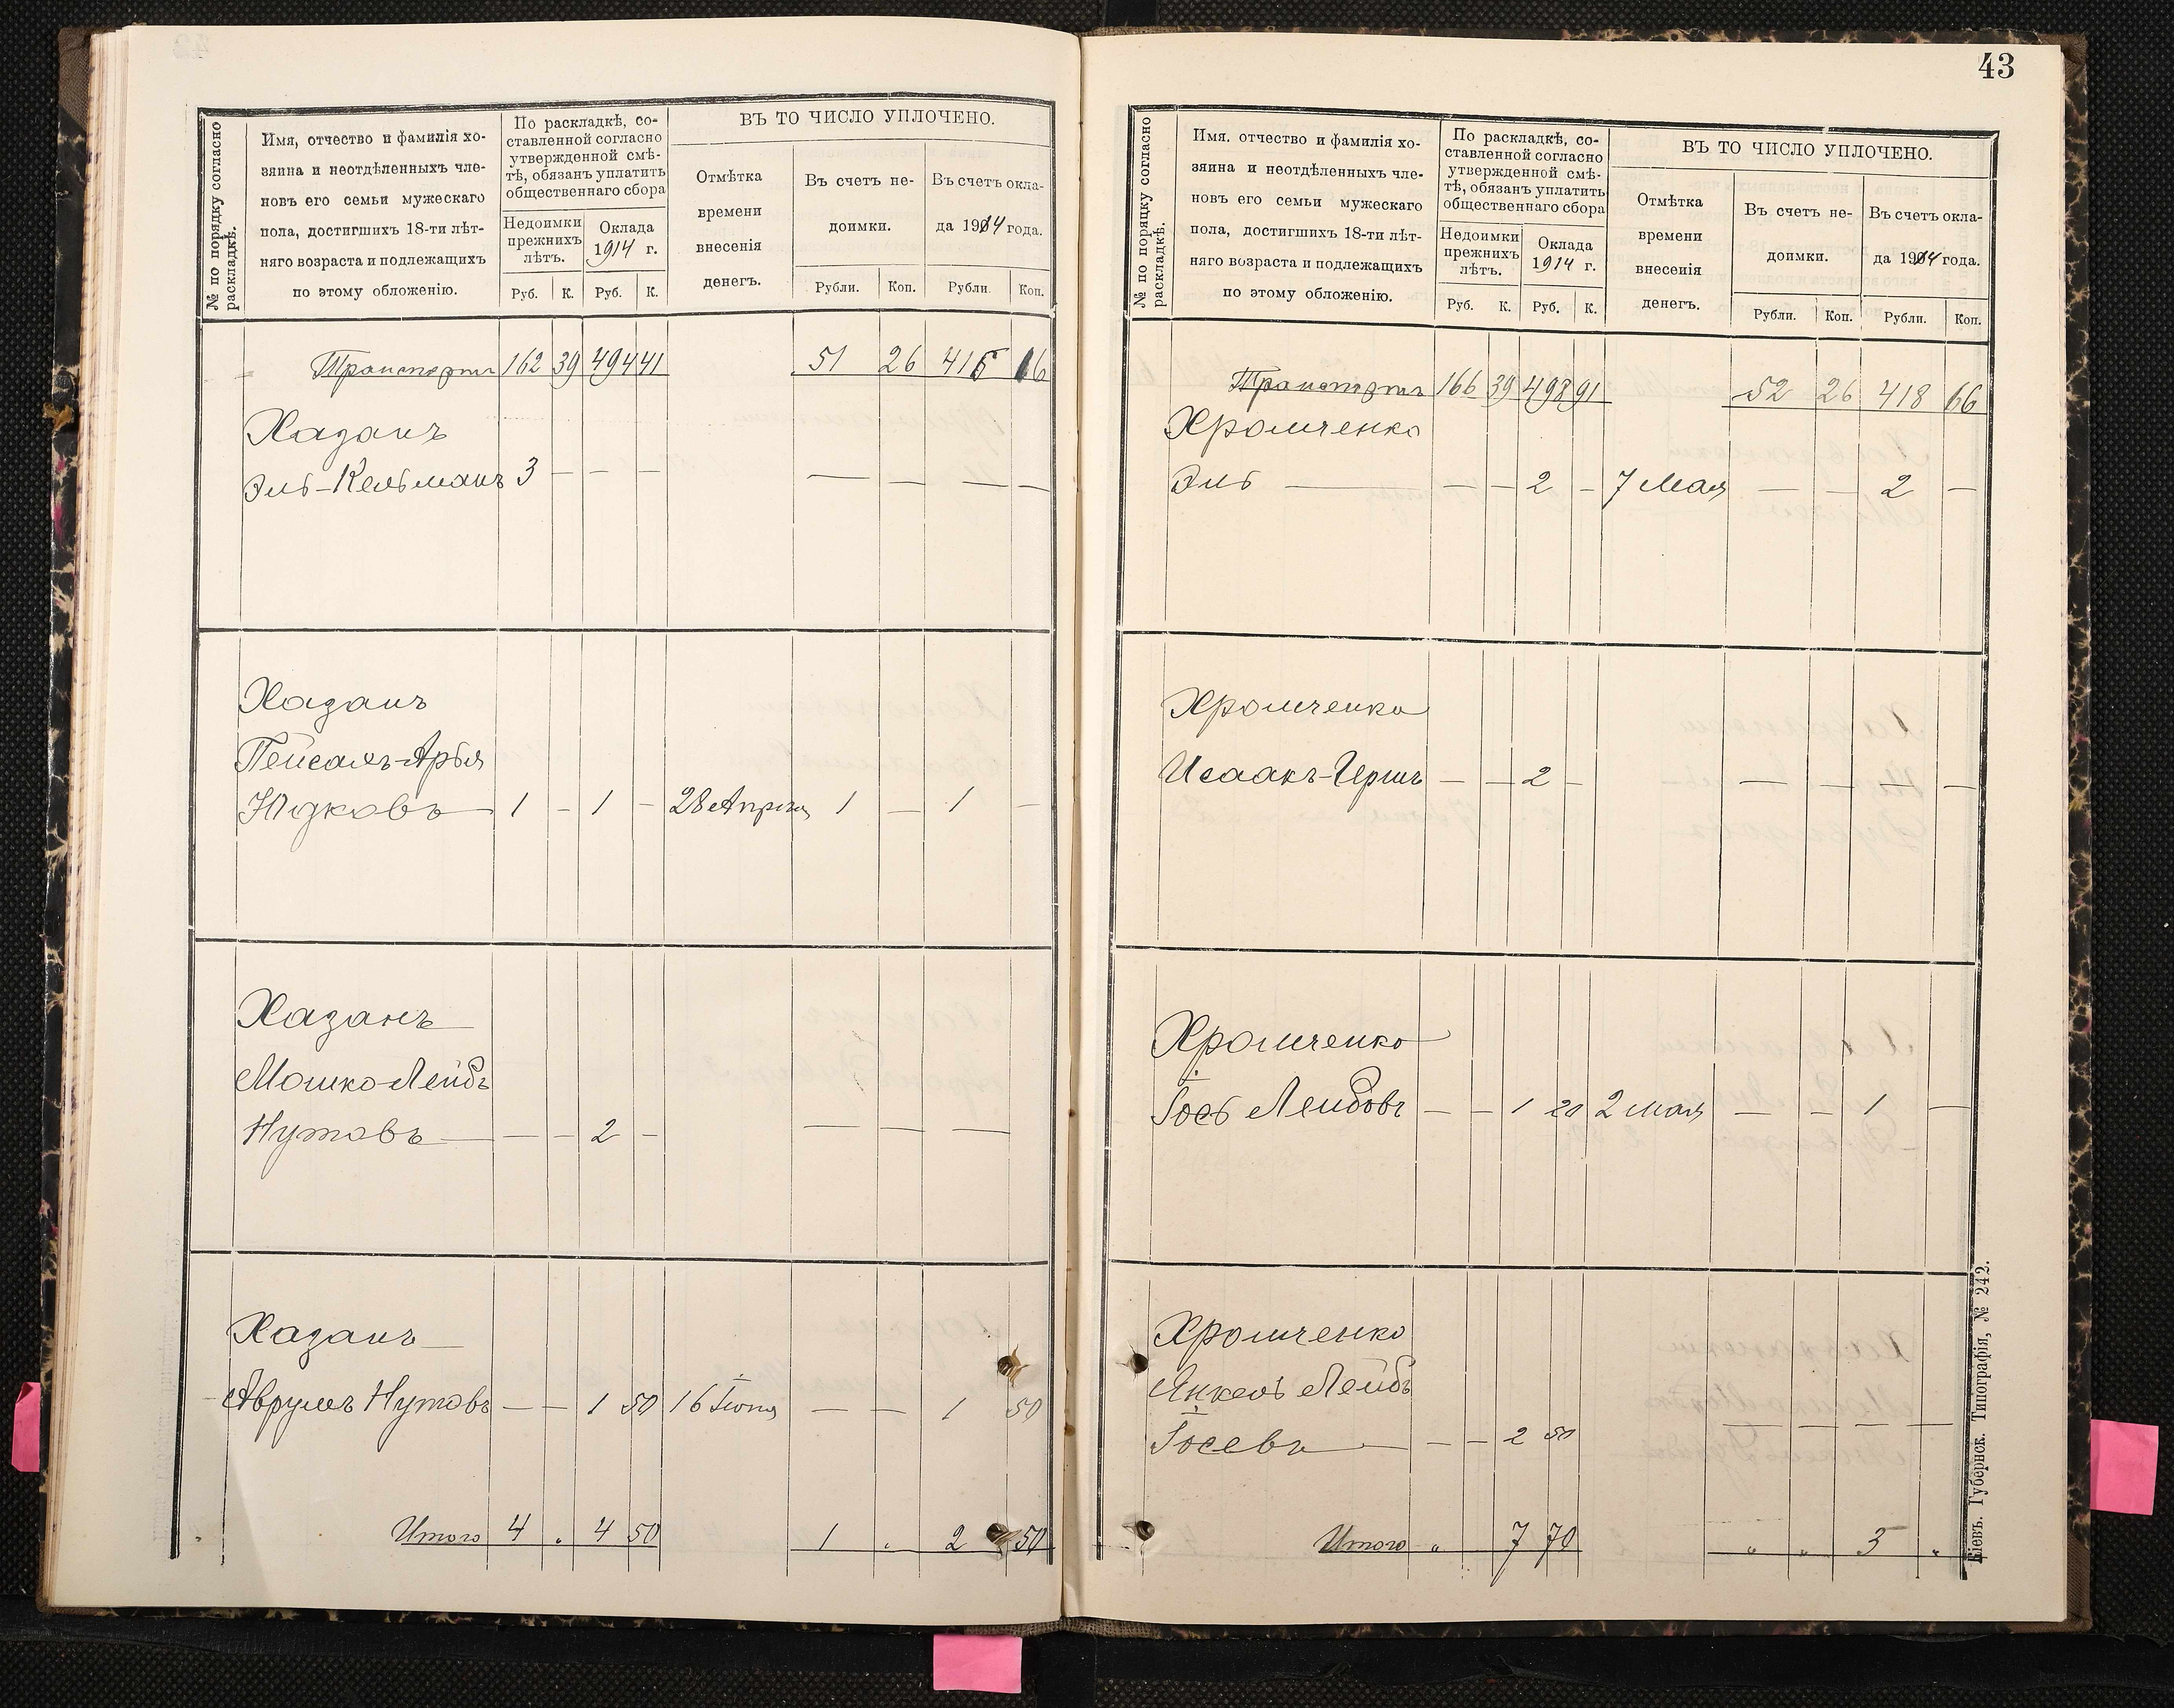 № по порядку согласно раскладкѣ.
Имя, отчество и фамилія хо-
зяина и неотдѣленныхъ чле-
новъ его семьи мужескаго
пола, достигшихъ 18-ти лѣт-
няго возраста и подлежащихъ
по этому обложенію.
По раскладкѣ, со-
ставленной согласно
утвержденной смѣ-
тѣ, обязанъ уплатить
общественнаго сбора
Недоимки
прежнихъ
лѣтъ.
Оклада
1914 г.
Руб. К. Руб. К.
ВЪ ТО ЧИСЛО УПЛОЧЕНО.
Отмѣтка
времени
внесенія
денегъ.
Въ счетъ не-
доимки.
Въ счетъ окла-
да 1914 года.
Рубли. Коп. Рубли. Коп.
Транспортъ 162 39 494 41 51 26 416 16
Хазанъ
Эль-Кельманъ 3 — — — — — — —
Хазанъ
Пейсахъ-Арья
Юдковъ 1 — 1 — 28 Апрѣля 1 — 1 —
Хазанъ
Мошко-Лейбъ
Нутовъ — — — 2 — — — —
Хазанъ
Аврумъ Нутовъ — — 1 50 16 Іюня — — 1 50
Итого 4 „ 4 50 1 „ 2 50
43
№ по порядку согласно раскладкѣ.
Имя, отчество и фамилія хо-
зяина и неотдѣленныхъ чле-
новъ его семьи мужескаго
пола, достигшихъ 18-ти лѣт-
няго возраста и подлежащихъ
по этому обложенію.
По раскладкѣ, со-
ставленной согласно
утвержденной смѣ-
тѣ, обязанъ уплатить
общественнаго сбора
Недоимки
прежнихъ
лѣтъ.
Оклада
1914 г.
Руб. К. Руб. К.
ВЪ ТО ЧИСЛО УПЛОЧЕНО.
Отмѣтка
времени
внесенія
денегъ.
Въ счетъ не-
доимки.
Въ счетъ окла-
да 1914 года.
Рубли. Коп. Рубли. Коп.
Транспортъ 166 39 498 91 52 26 418 66
Хромченко
Эль — — — 2 — 7 Мая — — 2 —
Хромченко
Исаакъ-Гершъ — — 2 — — — — —
Хромченко
Іось Лейбовъ — — 1 20 2 мая — — 1 —
Хромченко
Янкель Лейбъ
Іосевъ — — — 2 50 — — — —
Итого „ 7 70 „ „ 3 „
Кіевъ. Губернск. Типографія, № 242.